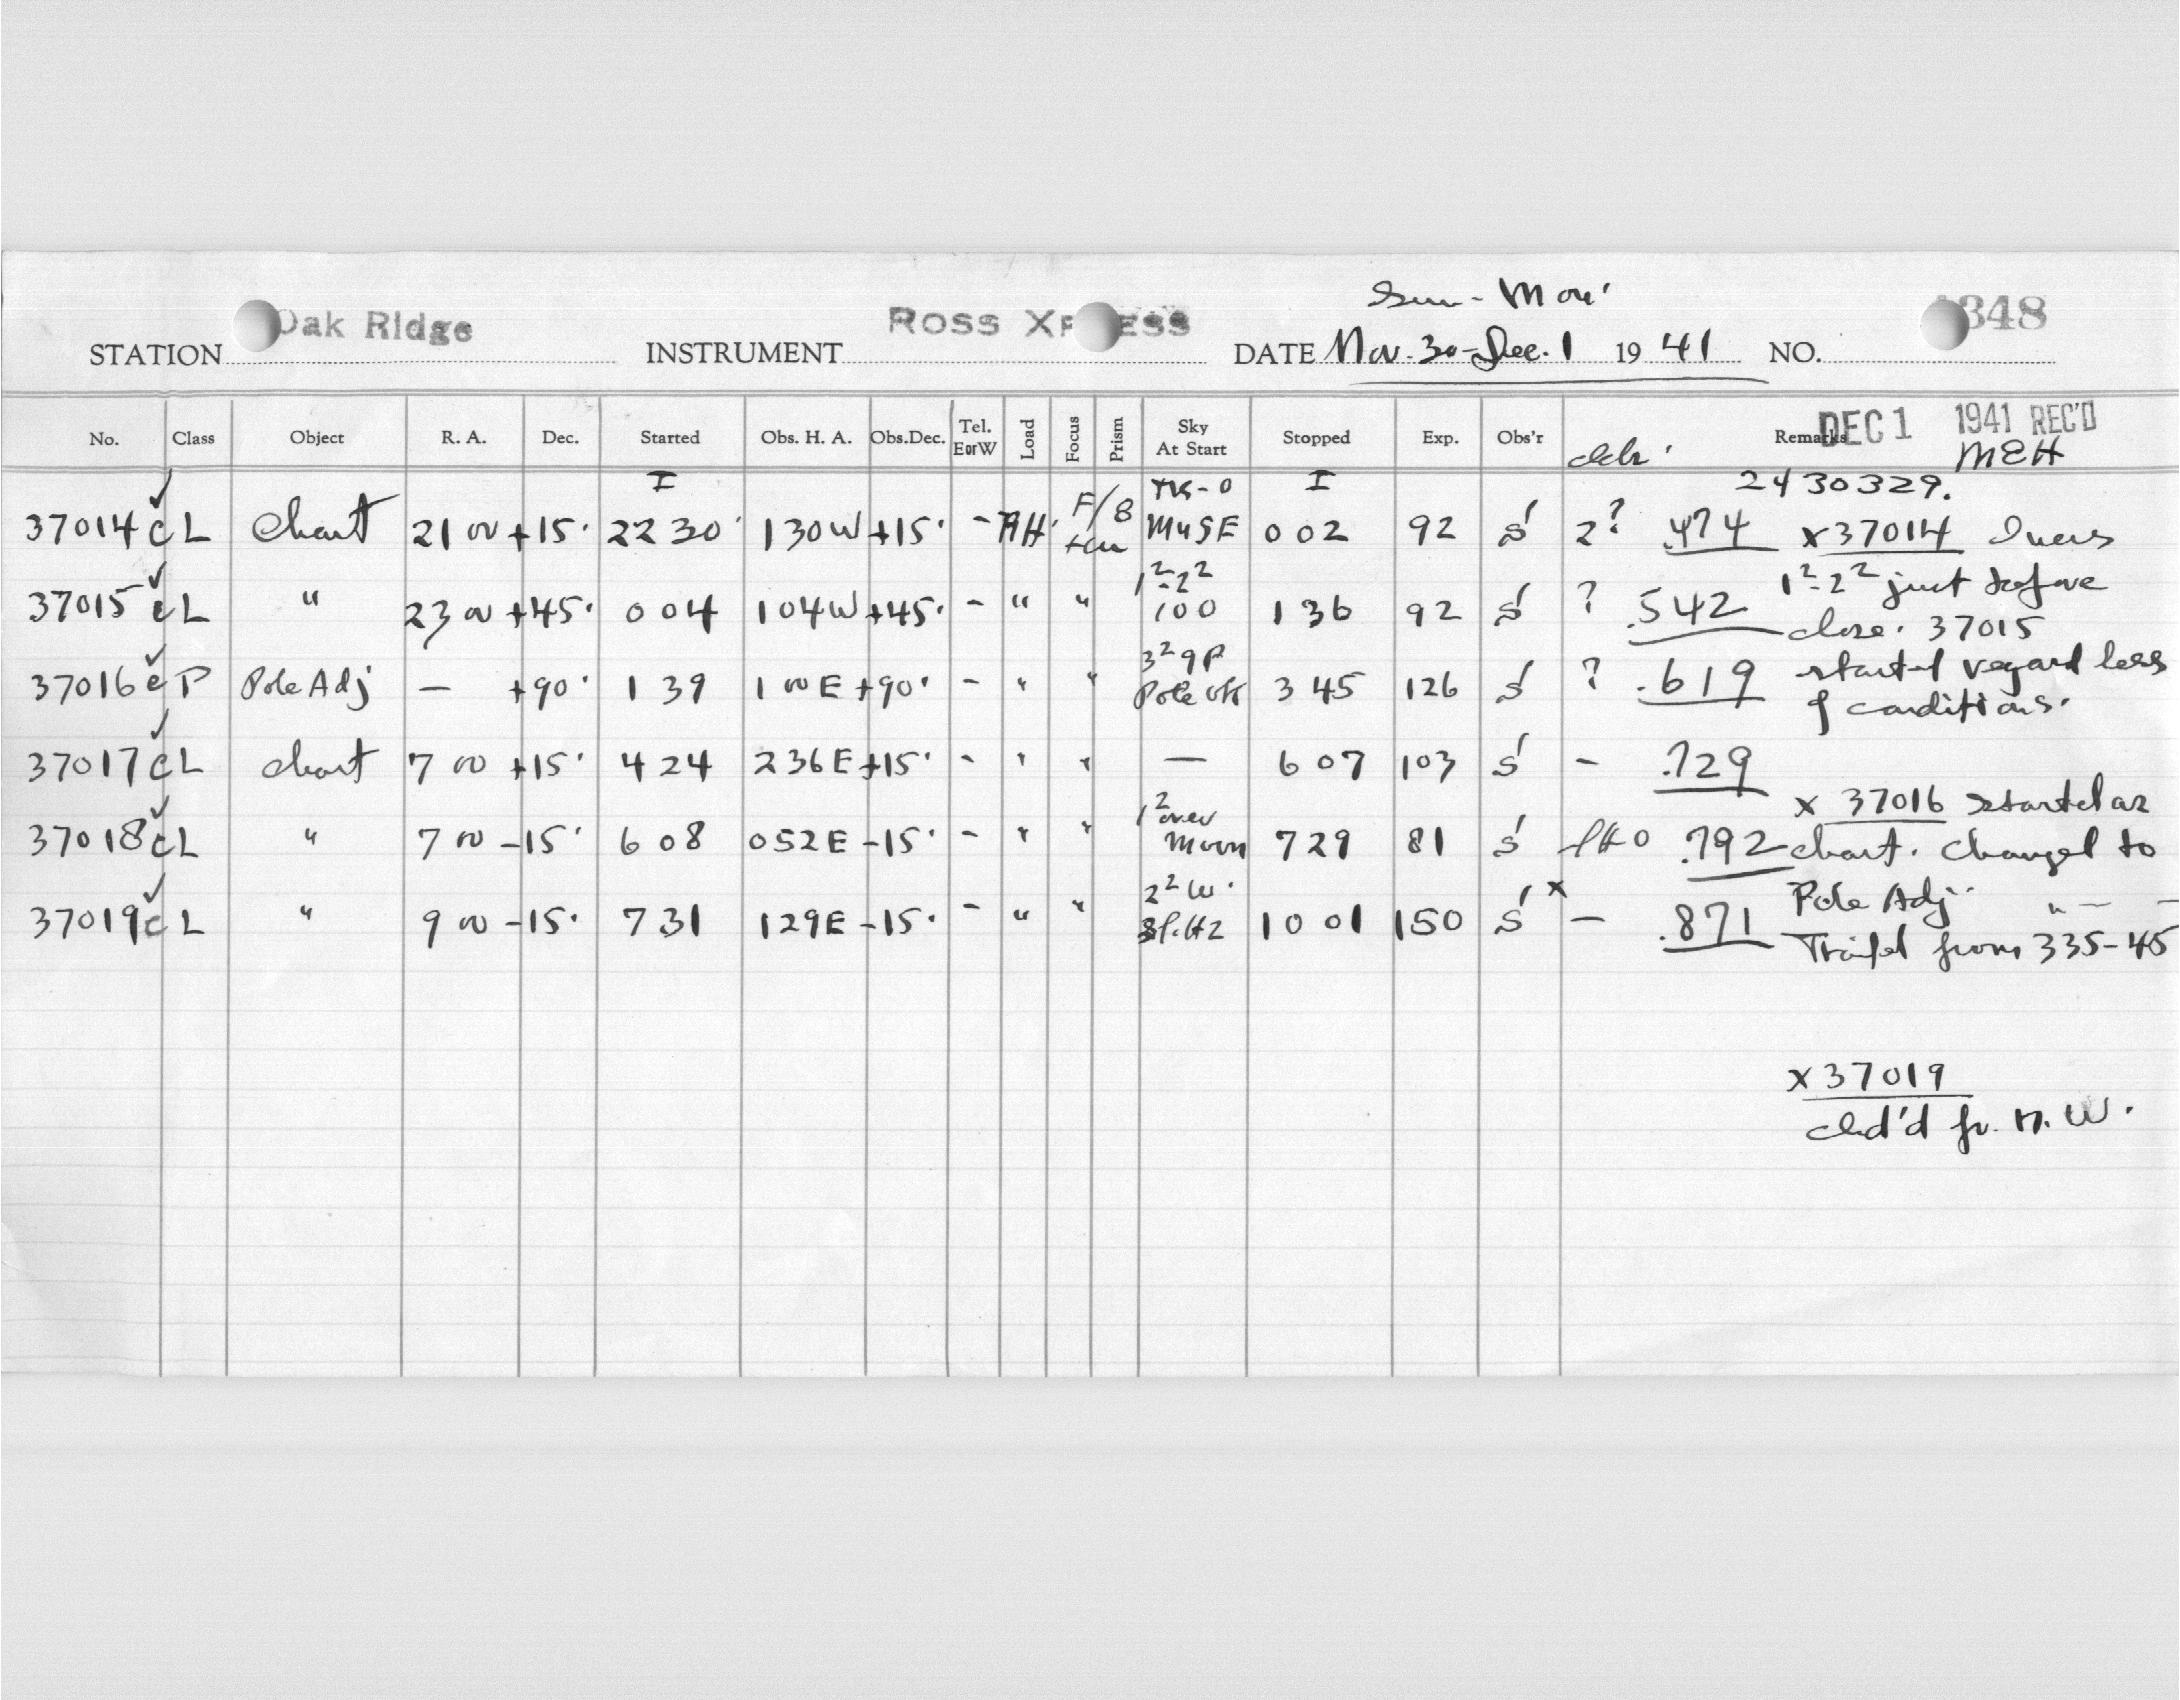 Sun - Mon.
STATION Oak Ridge INSTRUMENT ROSS XPRESS DATE Nov. 30 - Dec. 1 1941 NO. 348
No. Class Object R. A. Dec. Started Obs. H. A. Obs.Dec. Tel. EorW Load Focus Prism Sky At Start Stopped Exp. Obs'r Remarks
DEC 1 1941 REC'D
MEH
I I 2430329.
37014 c L Chart 21 00 +15° 22 30 1 30 W +15° - F/8 0 02 92 S 2? .474 x 37014
37015 c L " 23 00 +45° 0 04 1 04 W +45° - " " 1²-2² 100 1 36 92 S ? .542 1²-2² just before
close. 37015
37016 c P Pole Adj — +90° 1 39 1 00 E +90° - " " Pole OK 3 45 126 S ? .619 started regardless
of conditions.
37017 c L chart 7 00 +15° 4 24 2 36 E +15° - " " — 6 07 103 S - .729
37018 c L " 7 00 -15° 6 08 0 52 E -15° - " " 1² over Moon 7 29 81 S .792 x 37016 started as
chart. Changed to
37019 c L " 9 00 -15° 7 31 1 29 E -15° - " " 2² W. 10 01 150 S x — .871 Pole Adj. " — —
from 335-45
x 37019
cld'd fr. N. W.